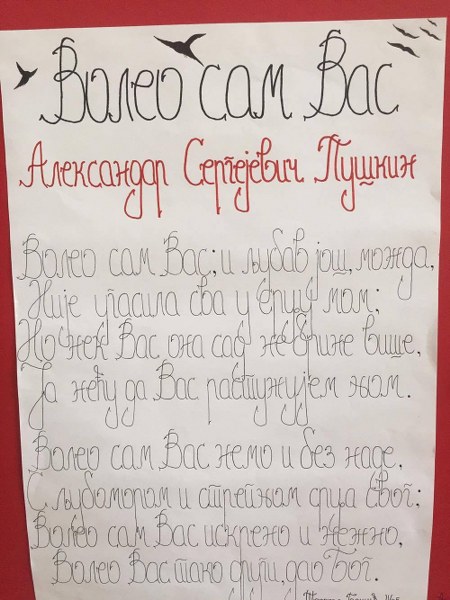 Волео сам Вас
Александар Сергејевич Пушкин
Волео сам Вас; и љубав још, можда,
Није угасила сва у срцу мом;
Но нек Вас она сад не брине више,
Ја нећу да Вас растужујем њом.
Волео сам Вас немо и без наде,
С љубомором и стрепњом срца свог;
Волео сам Вас искрено и нежно,
Волео Вас тако други, дао Бог.